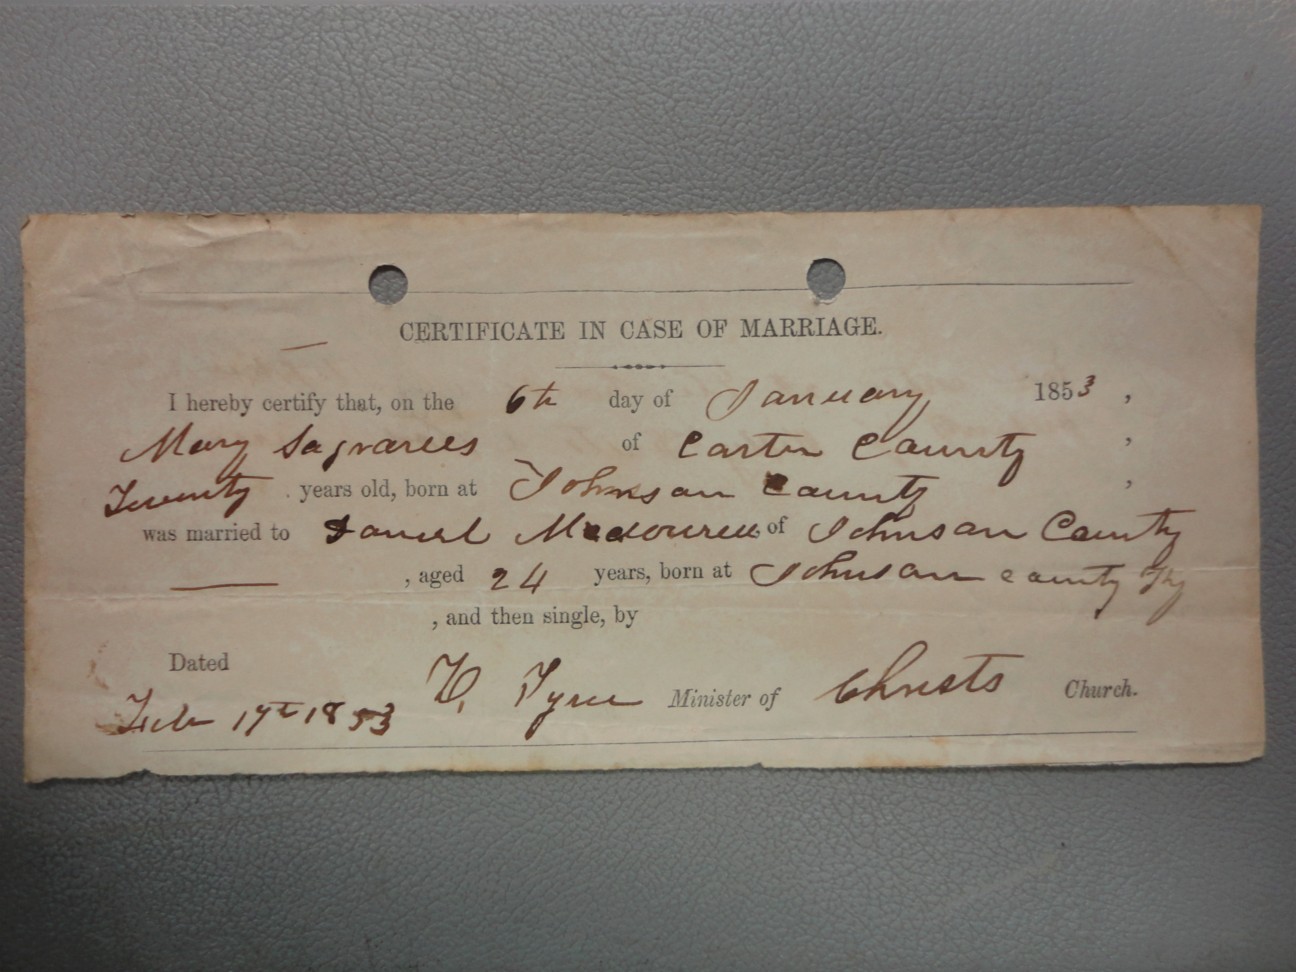 CERTIFICATE IN CASE OF MARRIAGE.
I hereby certify that, on the 6th day of January 1853,
Mary of Carter County,
Twenty years old, born at Johnson County,
was married to Daniel of Johnson County
, aged 24 years, born at Johnson County Ky
, and then single, by
Dated
Feb 17th 1853 Minister of Christs Church.